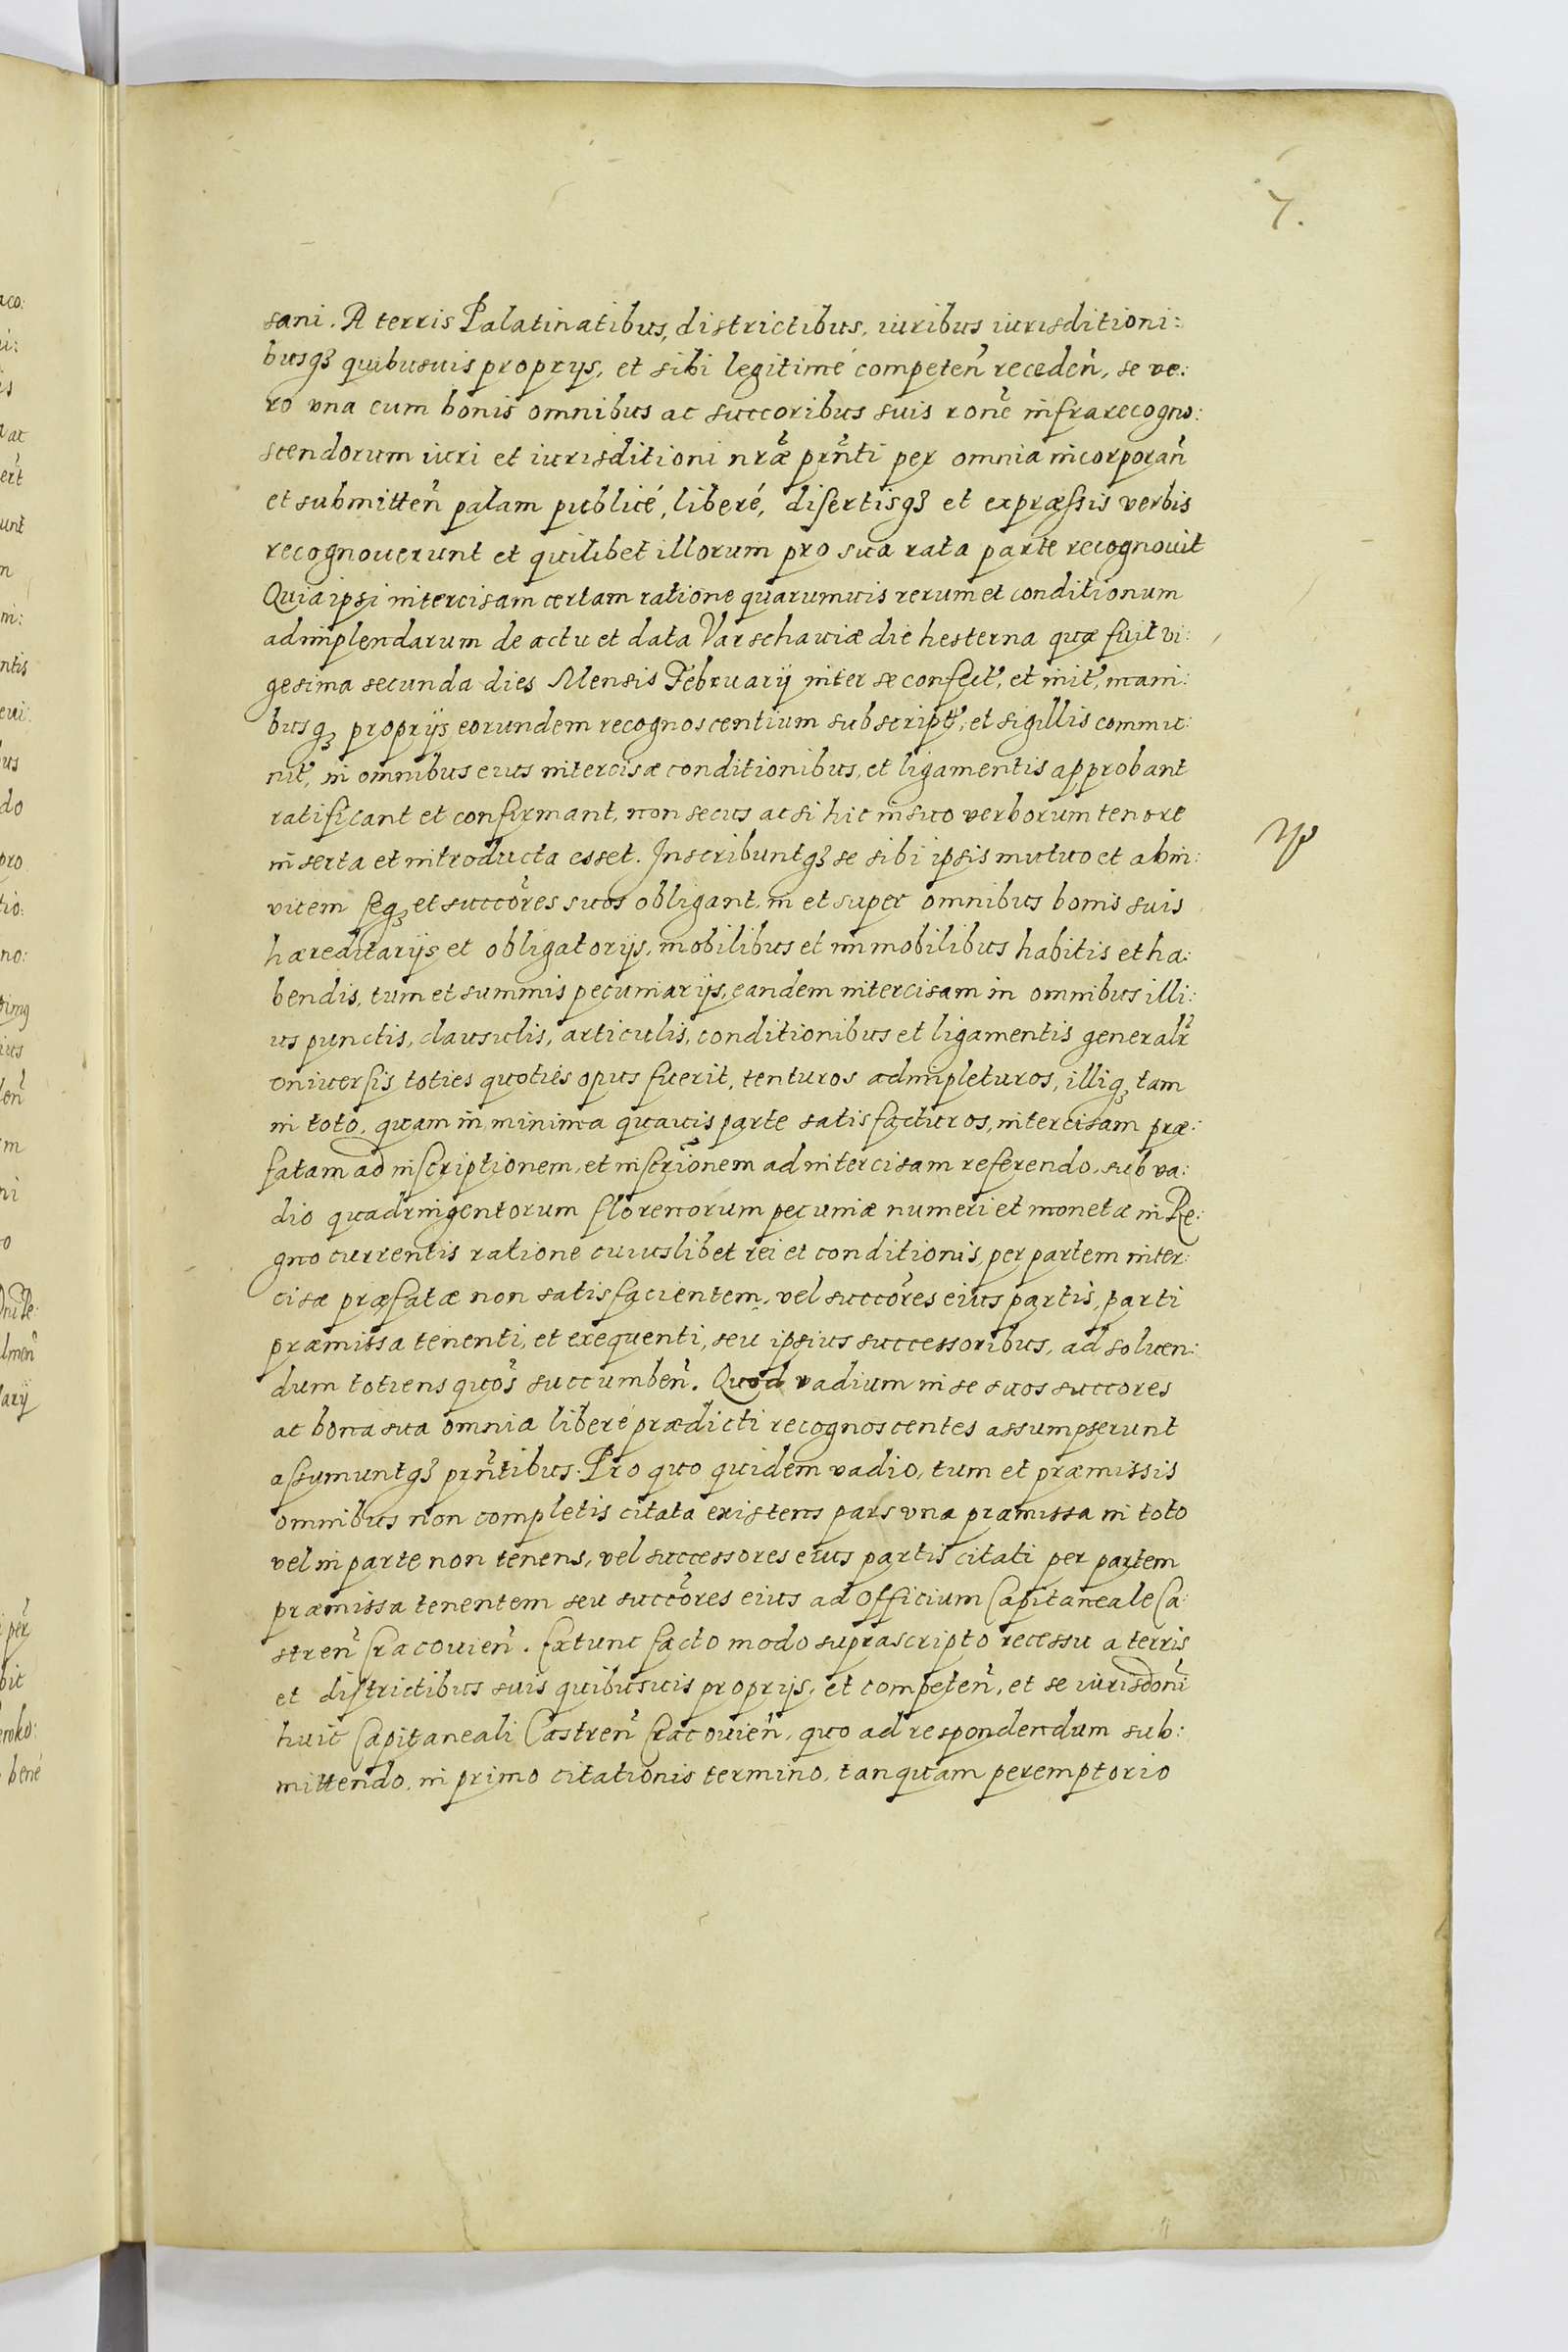 7.
sani. A terris Palatinatibus, districtibus, iuribus iurisditioni:
busq3 quibusuis proprys, et sibi legitimé competen̄ receden̄, se ve:
ro vna cum bonis omnibus ac succoribus suis ronē infrarecogno:
scendorum iuri et iurisditioni nrǣ prn̄ti per omnia incorporan̄
et submitten̄ palam publicé, liberé, disertisq3 et expræssis verbis
recognouerunt et quilibet illorum pro sua rata parte recognouit
Quia ipsi intercisam certam ratione quarumuis rerum et conditionum
adimplendarum de actu et data Varschauiæ die hesterna quæ fuit vi:
gesima secunda dies Mensis Februarij inter se confect̄, et init̄, mani:
busq3 proprijs eorundem recognoscentium subscript̄, et sigillis commu:
nit̄, in omnibus eius intercisæ conditionibus, et ligamentis approbant
ratificant et confirmant, non secus ac si hic in suo verborum tenore
inserta et introducta esset. Inscribuntq3 se sibi ipsis mutuo et abin:
vicem seq3 et succōres suos obligant, in et super omnibus bonis suis
hæreditarijs et obligatorijs, mobilibus et immobilibus habitis et ha:
bendis, tum et summis pecuniarijs, eandem intercisam in omnibus illi:
us punctis, clausulis, articulis, conditionibus et ligamentis generalr̄
vniuersis toties quotiés opus fuerit, tenturos adimpleturos, illiq3 tam
in toto, quam in minima quauis parte satisfacturos, intercisam præ:
fatam ad inscriptionem, et inscrīonem ad intercisam referendo, sub va:
dio quadringentorum florenorum pecuniæ numeri et monetæ in Re:
gno currentis ratione cuiuslibet rei et conditionis, per partem inter:
cisæ præfatæ non satisfacientem, vel succōres eius partis, parti
præmissa tenenti, et exequenti, seu ipsius successoribus, ad soluen:
dum totiens quōs succumben̄. Quod vadium in se suos succores
ac bona sua omnia liberé prædicti recognoscentes assumpserunt
assumuntq3 prn̄tibus. Pro quo quidem vadio, tum et præmissis
omnibus non completis citata existens pars vna præmissa in toto
vel in parte non tenens, vel successores eius partis citati per partem
præmissa tenentem seu succōres eius ad Officium Capitaneale Ca:
stren̄ Cracouien̄. Extunc facto modo suprascripto recessu a terris
et districtibus suis quibusuis proprijs, et competen̄, et se iurisdōni
huic Capitaneali Castren̄ Cracouien̄, quo ad respondendum sub:
mittendo, in primo citationis termino, tanquam peremptorio